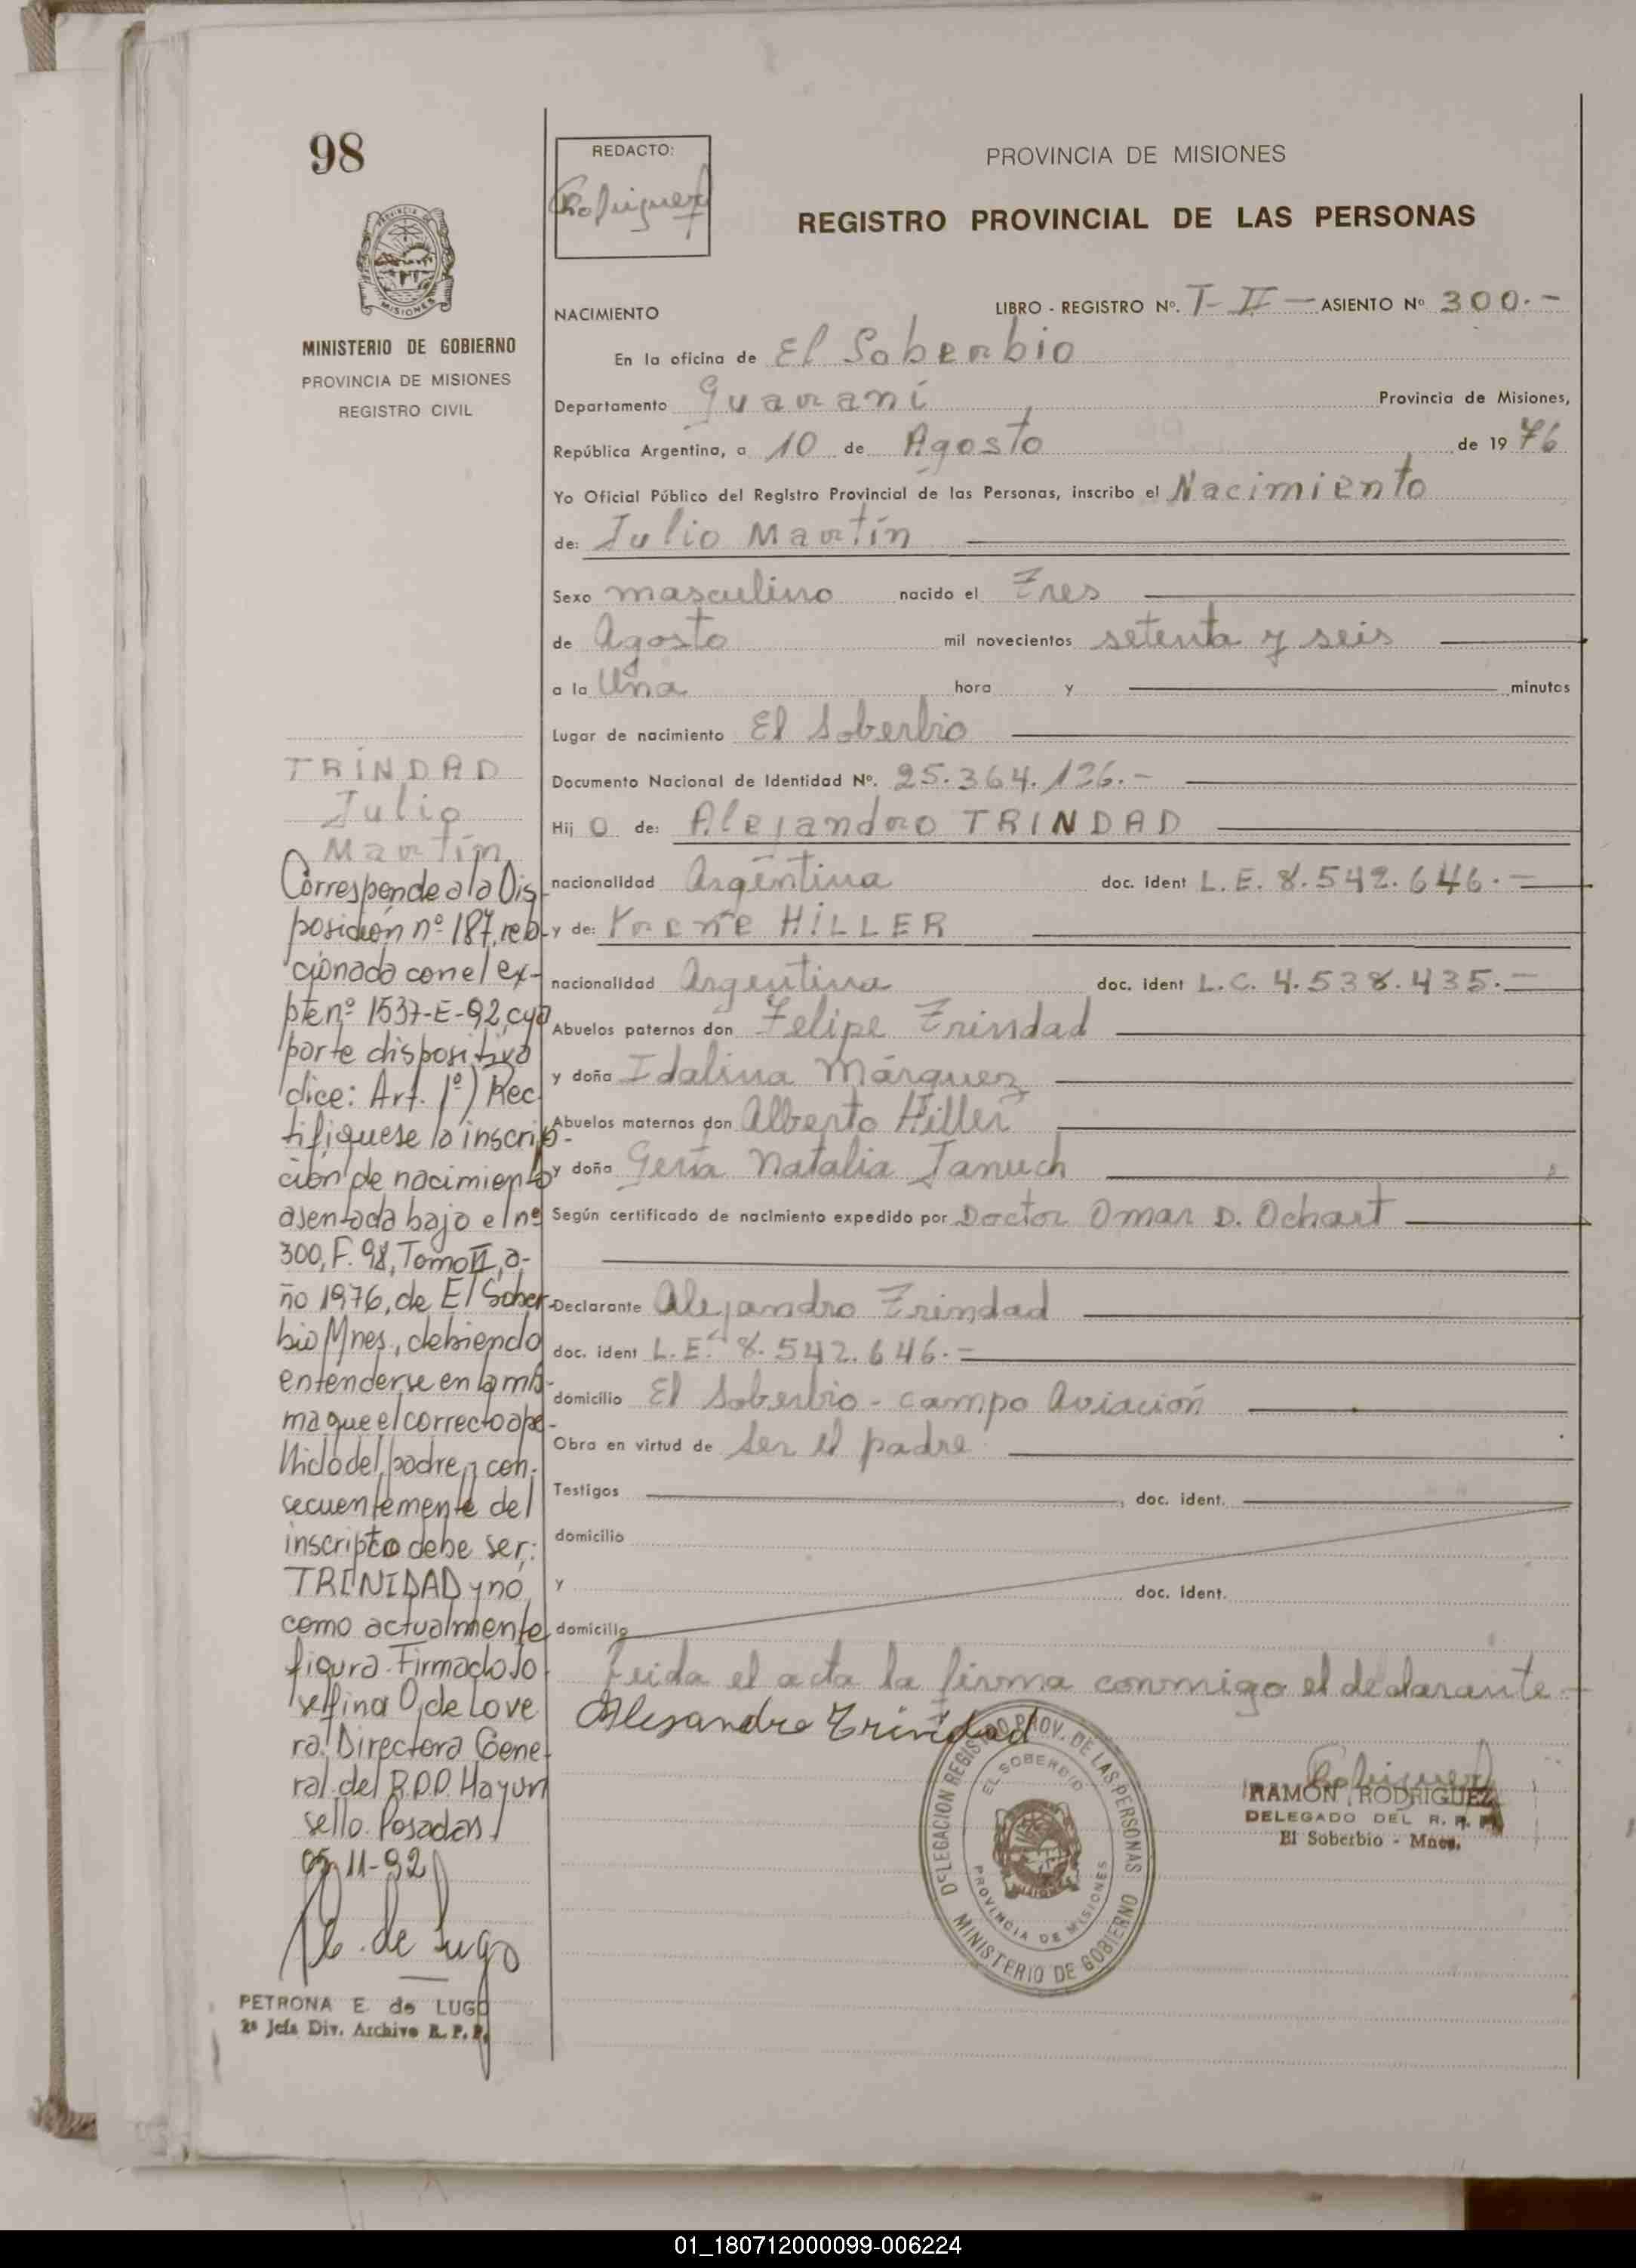 98
PROVINCIA DE MISIONES
MINISTERIO DE GOBIERNO
PROVINCIA DE MISIONES
REGISTRO CIVIL
REDACTO:
Rodriguez
PROVINCIA DE MISIONES
REGISTRO PROVINCIAL DE LAS PERSONAS
NACIMIENTO
LIBRO - REGISTRO Nº. T- II — ASIENTO Nº 300.-
En la oficina de El Soberbio
Departamento Guaraní Provincia de Misiones,
República Argentina, a 10 de Agosto de 1976
Yo Oficial Público del Registro Provincial de las Personas, inscribo el Nacimiento
de: Julio Martín
Sexo masculino nacido el Tres
de Agosto mil novecientos setenta y seis
a la Una hora y minutos
Lugar de nacimiento El Soberbio
Documento Nacional de Identidad Nº. 25.364.126.-
Hijo de: Alejandro TRINDAD
nacionalidad Argentina doc. ident L.E. 8.542.646.-
y de: Yrene HILLER
nacionalidad Argentina doc. ident L.C. 4.538.435.-
Abuelos paternos don Felipe Trindad
y doña Idalina Márquez
Abuelos maternos don Alberto Hiller
y doña Natalia Januch
Según certificado de nacimiento expedido por Doctor Omar D. Ochart
Declarante Alejandro Trindad
doc. ident L.E. 8.542.646.-
domicilio El Soberbio - campo Aviación
Obra en virtud de ser el padre
Testigos , doc. ident.
domicilio
y doc. ident.
domicilio
Leida el acta la firma conmigo el declarante-
Alesandro Trinidad
DELEGACION REGISTRO PROV. DE LAS PERSONAS
EL SOBERBIO
PROVINCIA DE MISIONES
MINISTERIO DE GOBIERNO
Rodriguez
RAMON RODRIGUEZ
DELEGADO DEL R. P. P.
El Soberbio - Mnes.
TRINDAD
Julio
Martín
Corresponde a la Dis-
posición nº 187, rela-
cionada con el ex-
pte nº 1537-E-92, cya
parte dispositiva
dice: Art. 1º) Rec
tifíquese la inscrip-
ción de nacimiento
asentada bajo el nº
300, F. 98, Tomo II, a-
ño 1976, de El Sober-
bio Mnes., debiendo
entenderse en la mis-
ma que el correcto ape-
llido del padre y con-
secuentemente del
inscripto debe ser:
TRINIDAD y no
como actualmente
figura. Firmado Jo
sefina O. de Love
ra. Directora Gene-
ral del R.P.P. Hay un
sello. Posadas,
05-11-92
P. E. de Lugo
PETRONA E. de LUGO
2ª Jefa Div. Archivo R. P. P.
01_180712000099-006224